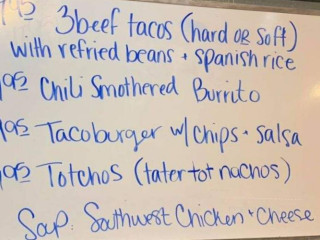 3 beef tacos (hard or soft)
with refried beans + spanish rice
Chili Smothered Burrito
Tacoburger w/ chips + salsa
Totchos (tater tot nachos)
Soup: Southwest Chicken + Cheese